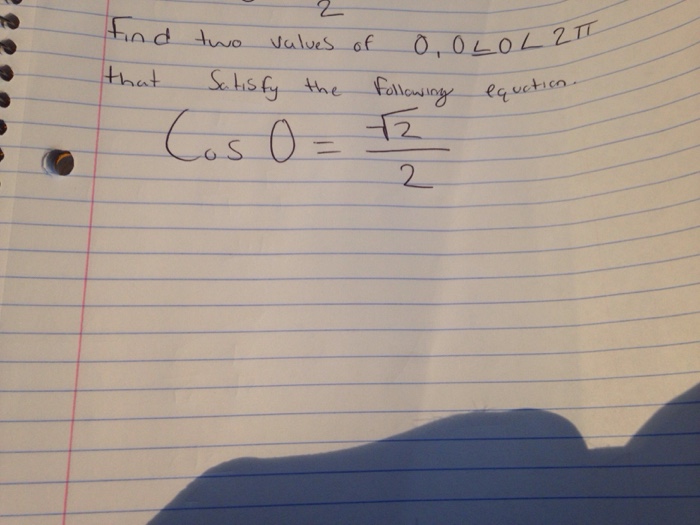 2
Find two values of 0, 0 ≤ 0 < 2π
that Satisfy the following equation.
Cos 0 = √2 / 2